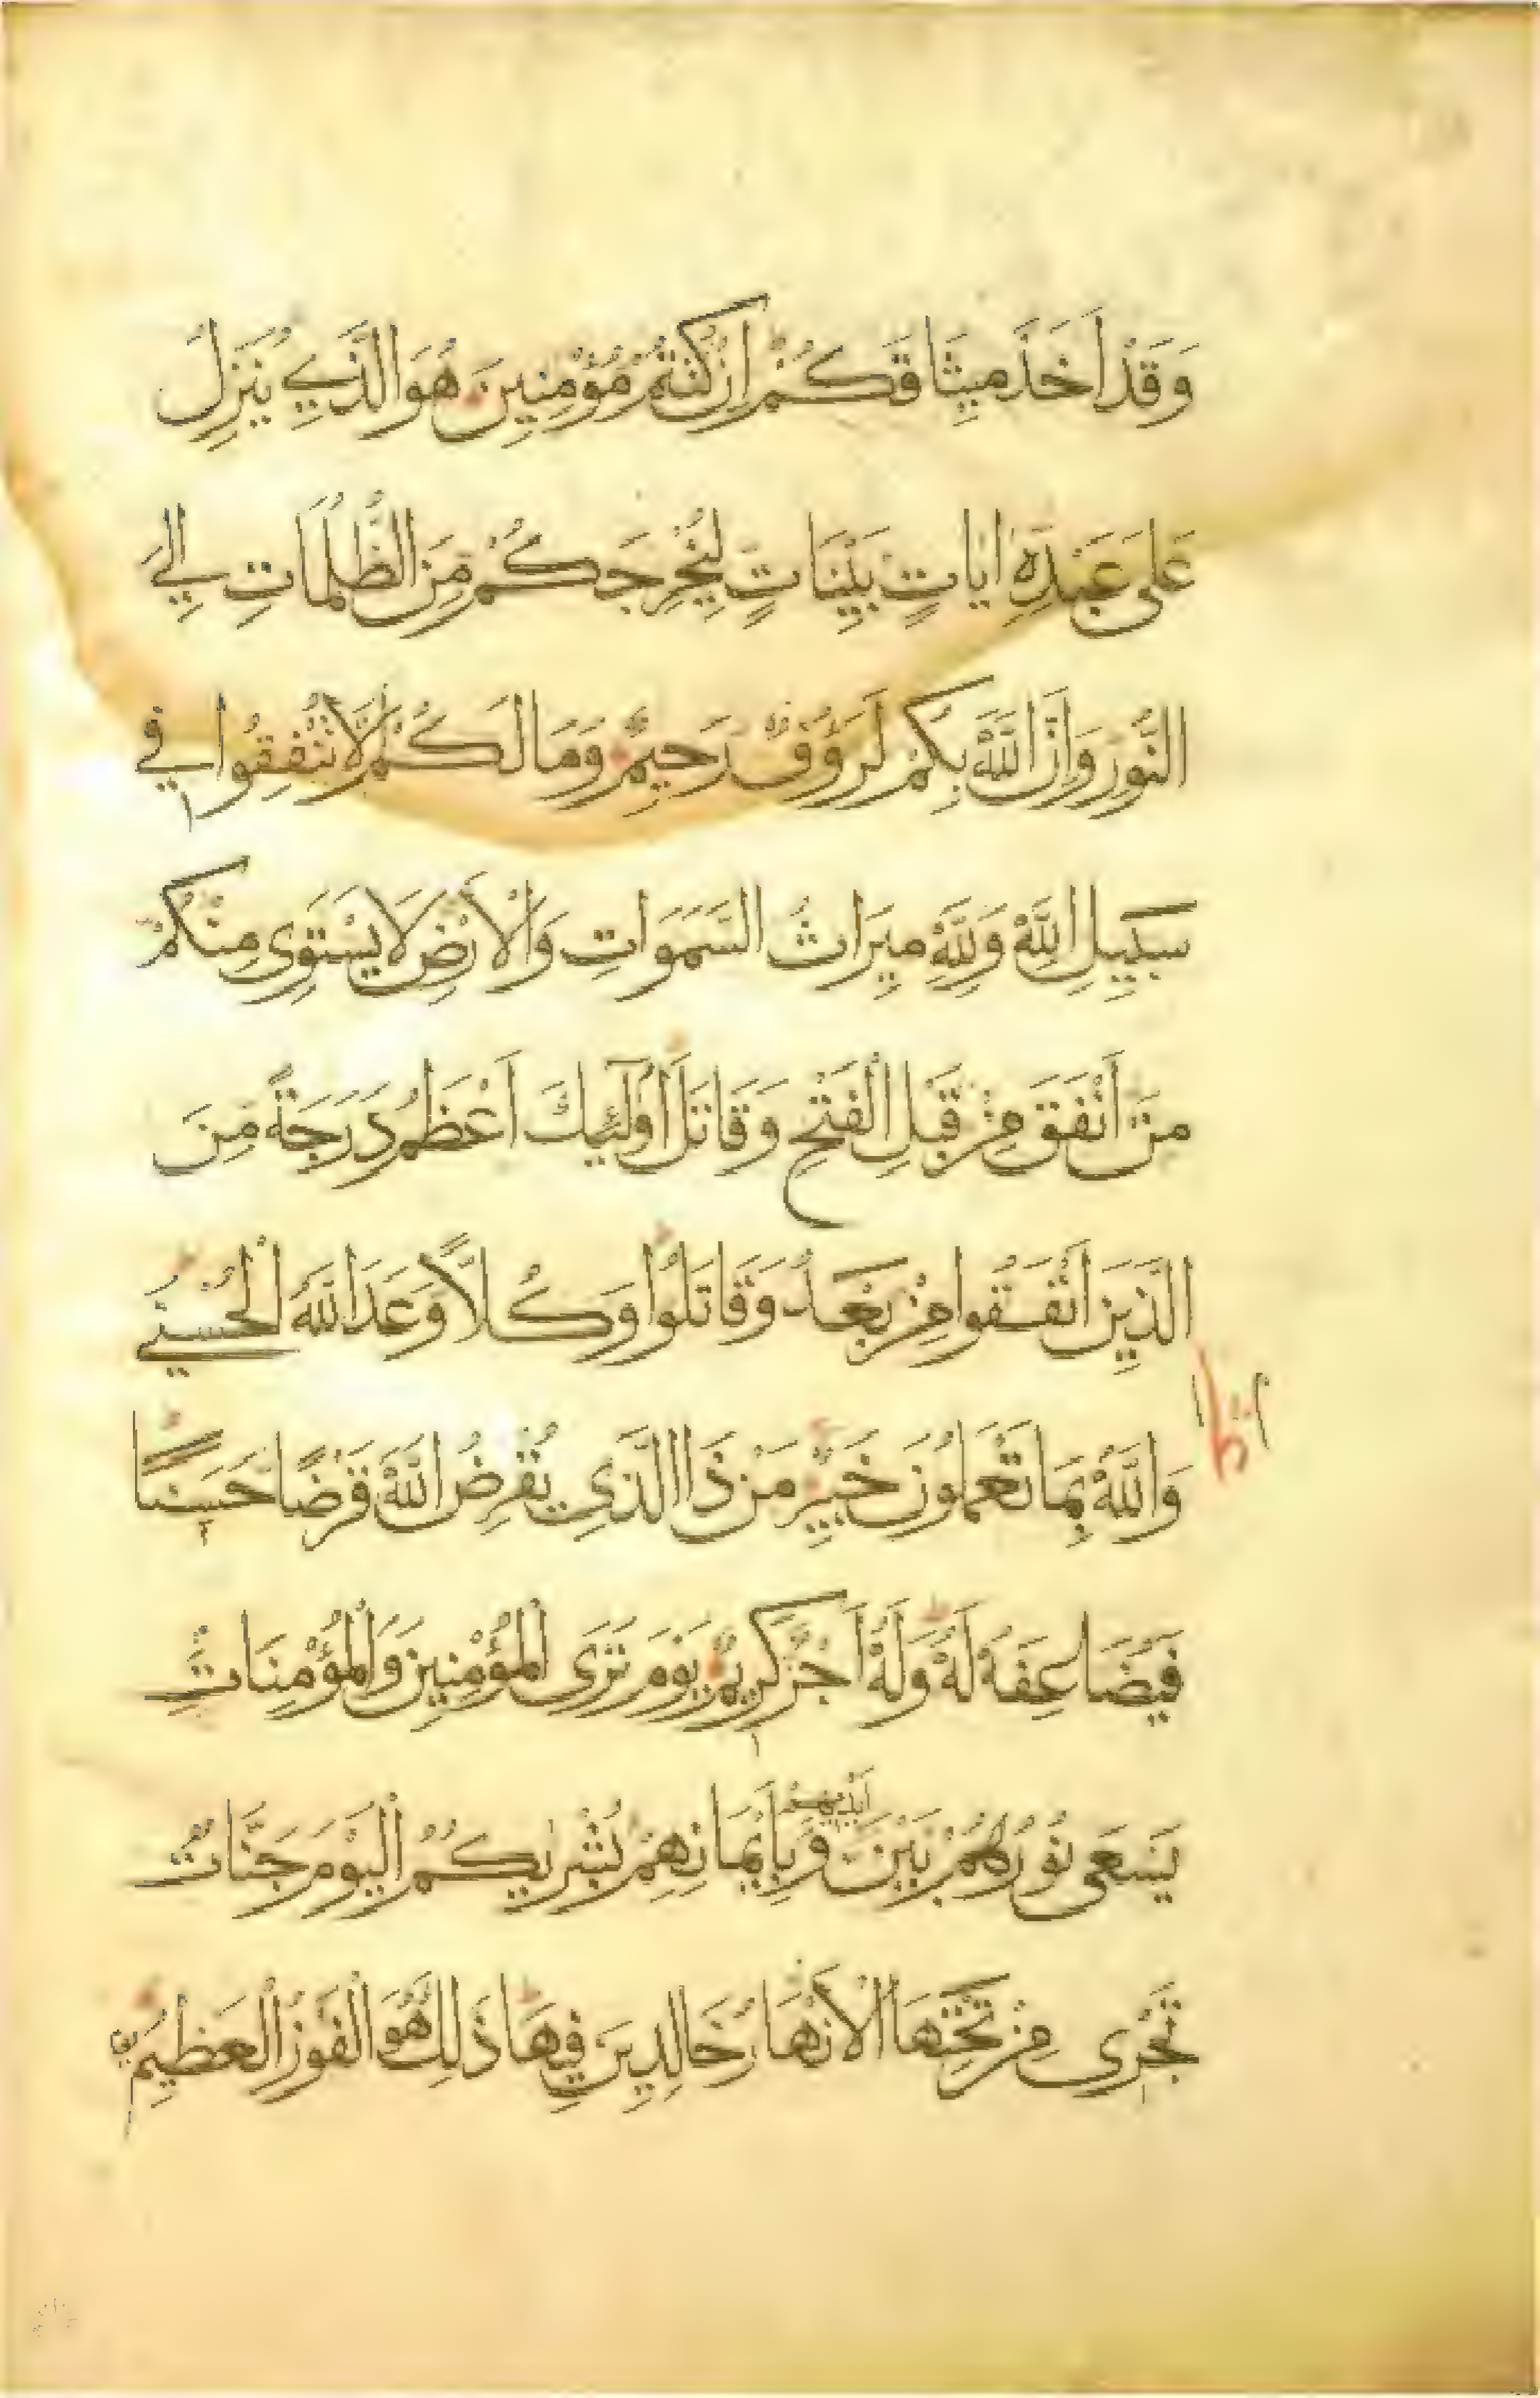 وَقَدْ اَخَذَ مِيثَاقَكُمْ اِنْ كُنْتُمْ مُؤْمِنِينَ هُوَ الَّذِي يُنَزِّلُ
عَلَى عَبْدِهِ اٰيَاتٍ بَيِّنَاتٍ لِيُخْرِجَكُمْ مِنَ الظُّلُمَاتِ اِلَى
النُّورِ وَاِنَّ اللّٰهَ بِكُمْ لَرَؤُفٌ رَحِيمٌ وَمَا لَكُمْ اَلَّا تُنْفِقُوا فِي
سَبِيلِ اللّٰهِ وَلِلّٰهِ مِيرَاثُ السَّمَوَاتِ وَالْاَرْضِ لَا يَسْتَوِى مِنْكُمْ
مَنْ اَنْفَقَ مِنْ قَبْلِ الْفَتْحِ وَقَاتَلَ اُولٰٓئِكَ اَعْظَمُ دَرَجَةً مِنَ
الَّذِينَ اَنْفَقُوا مِنْ بَعْدُ وَقَاتَلُوا وَكُلًّا وَعَدَ اللّٰهُ الْحُسْنَى
وَاللّٰهُ بِمَا تَعْمَلُونَ خَبِيرٌ مَنْ ذَا الَّذِى يُقْرِضُ اللّٰهَ قَرْضًا حَسَنًا
فَيُضَاعِفَهُ لَهُ وَلَهُ اَجْرٌ كَرِيمٌ يَوْمَ تَرَى الْمُؤْمِنِينَ وَالْمُؤْمِنَاتِ
يَسْعَى نُورُهُمْ بَيْنَ اَيْدِيهِمْ وَبِاَيْمَانِهِمْ بُشْرٰيكُمُ الْيَوْمَ جَنَّاتٌ
تَجْرِى مِنْ تَحْتِهَا الْاَنْهَارُ خَالِدِينَ فِيهَا ذَلِكَ هُوَ الْفَوْزُ الْعَظِيمُ